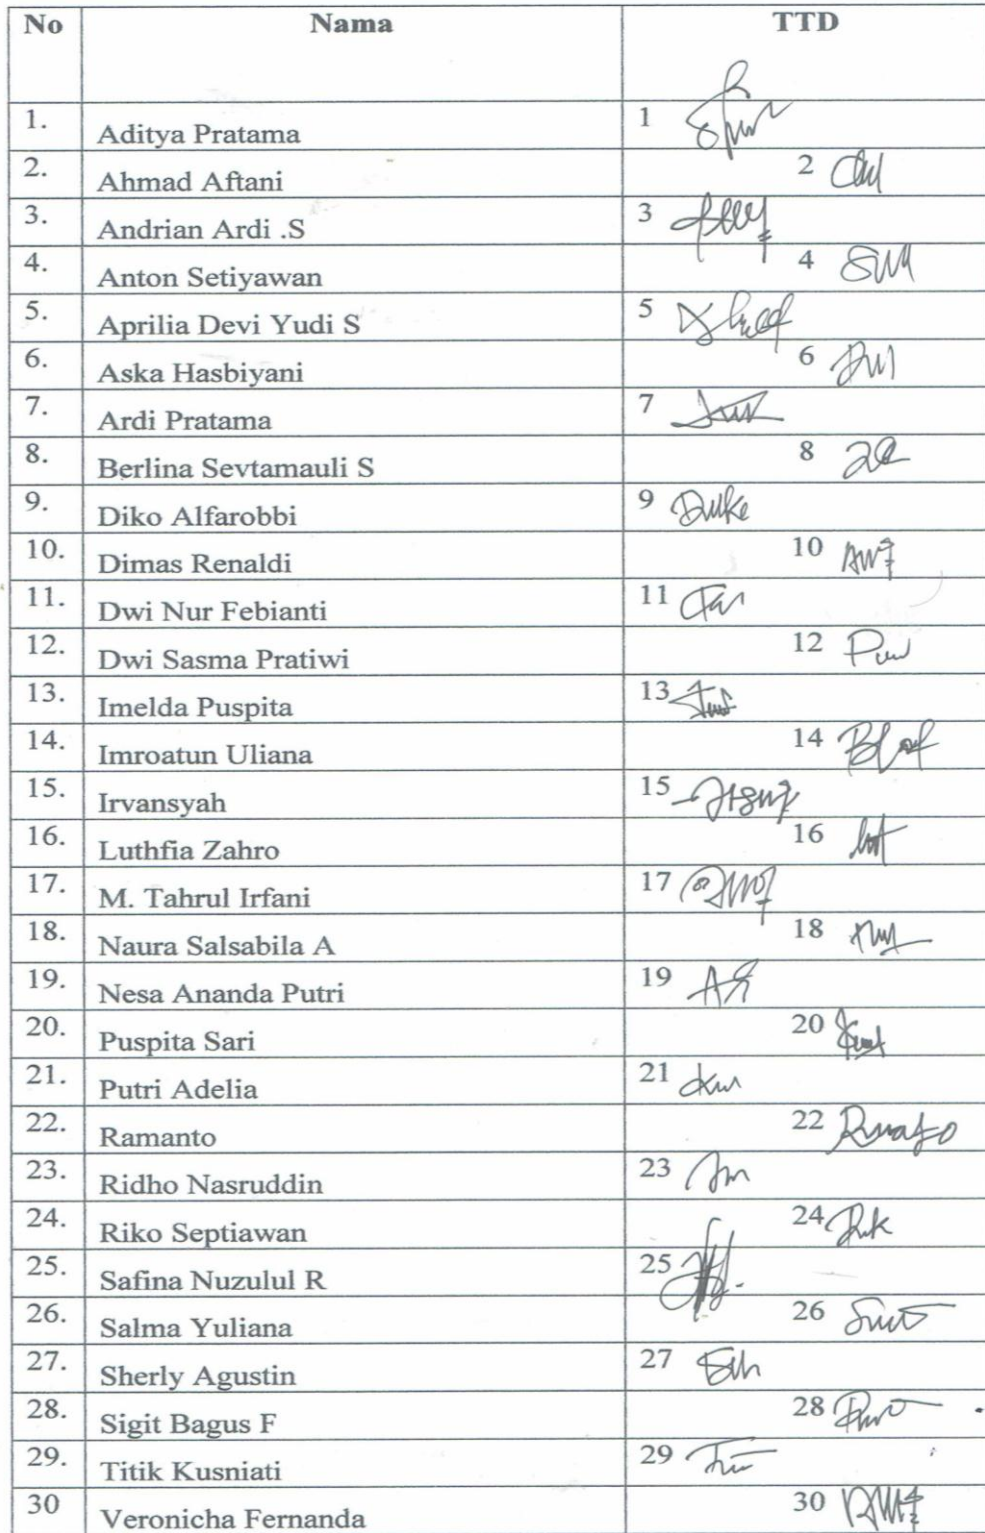 No Nama TTD
1. Aditya Pratama 1
2. Ahmad Aftani 2
3. Andrian Ardi .S 3
4. Anton Setiyawan 4
5. Aprilia Devi Yudi S 5
6. Aska Hasbiyani 6
7. Ardi Pratama 7
8. Berlina Sevtamauli S 8
9. Diko Alfarobbi 9
10. Dimas Renaldi 10
11. Dwi Nur Febianti 11
12. Dwi Sasma Pratiwi 12
13. Imelda Puspita 13
14. Imroatun Uliana 14
15. Irvansyah 15
16. Luthfia Zahro 16
17. M. Tahrul Irfani 17
18. Naura Salsabila A 18
19. Nesa Ananda Putri 19
20. Puspita Sari 20
21. Putri Adelia 21
22. Ramanto 22
23. Ridho Nasruddin 23
24. Riko Septiawan 24
25. Safina Nuzulul R 25
26. Salma Yuliana 26
27. Sherly Agustin 27
28. Sigit Bagus F 28
29. Titik Kusniati 29
30 Veronicha Fernanda 30